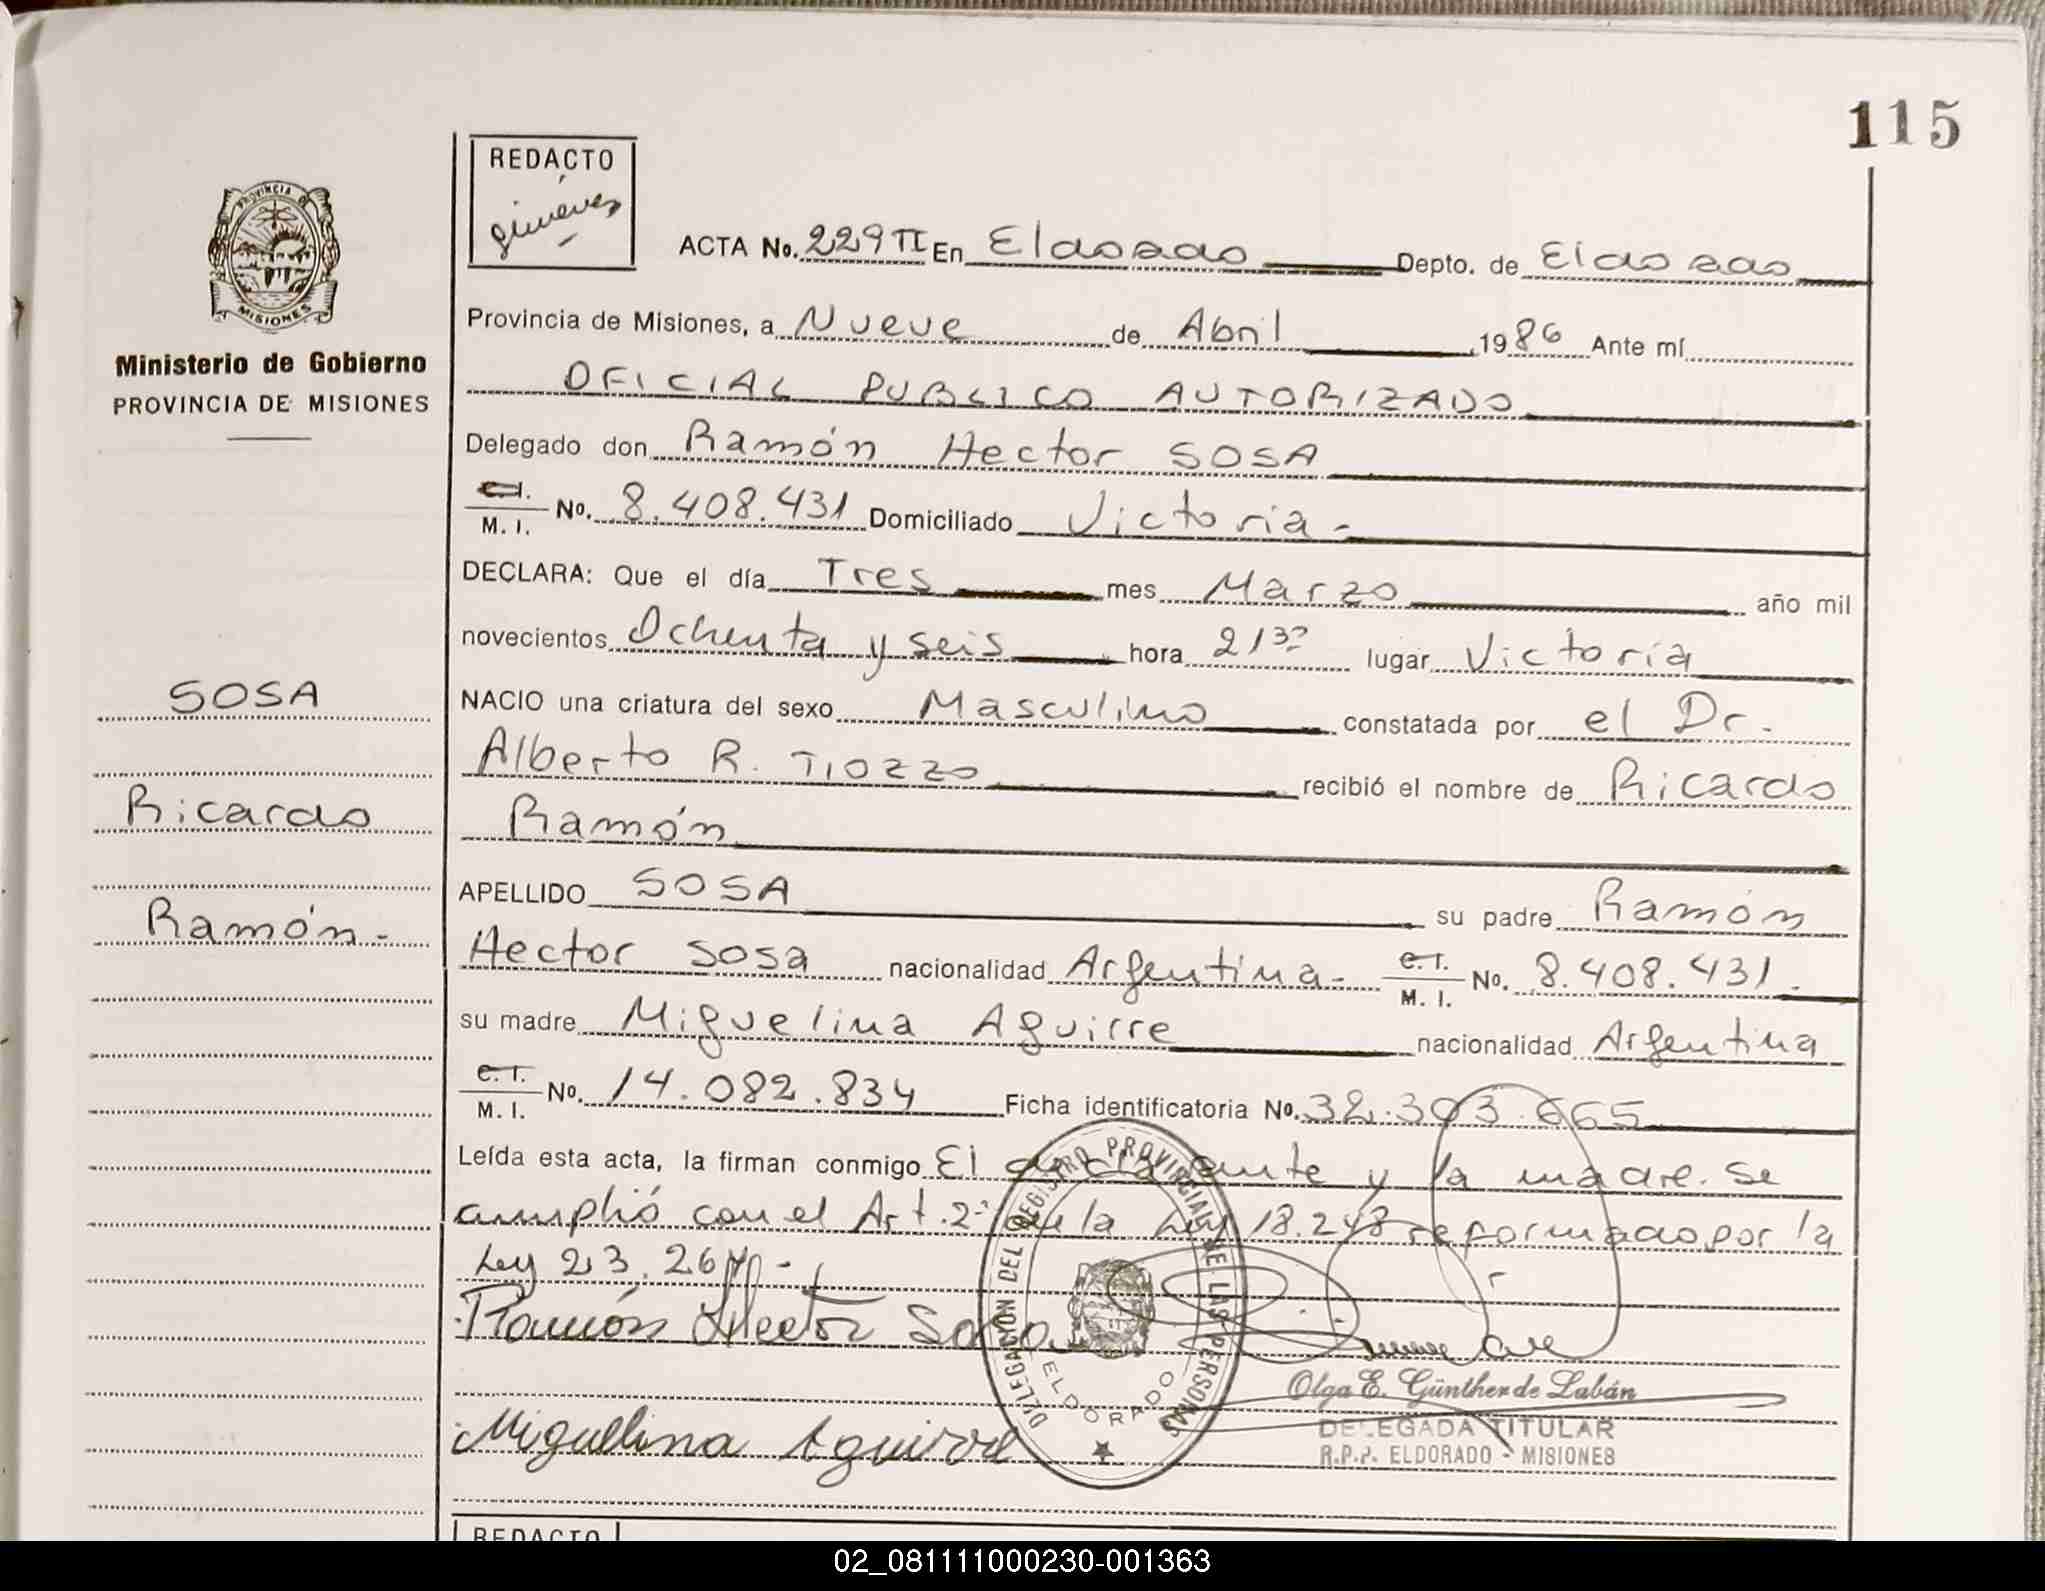 115
REDACTO
gimenez
PROVINCIA DE
MISIONES
Ministerio de Gobierno
PROVINCIA DE MISIONES
ACTA No. 229 TI En Eldorado Depto. de Eldorado
Provincia de Misiones, a Nueve de Abril 1986 Ante mí
OFICIAL PUBLICO AUTORIZADO
Delegado don Ramón Hector SOSA
C.I. M. I. No. 8.408.431 Domiciliado Victoria -
DECLARA: Que el día Tres mes Marzo año mil
novecientos Ochenta y seis hora 21 30 lugar Victoria
NACIO una criatura del sexo Masculino constatada por el Dr.
Alberto R. TIOZZO recibió el nombre de Ricardo
Ramón
APELLIDO SOSA su padre Ramón
Hector Sosa nacionalidad Argentina - C.I. M. I. No. 8.408.431.
su madre Miguelina Aguirre nacionalidad Argentina
C.I. M. I. No. 14.082.834 Ficha identificatoria No. 32.303.665
Leída esta acta, la firman conmigo El declarante y la madre. Se
cumplió con el Art. 2º de la Ley 18.248 reformado por la
Ley 23.264 -
SOSA
Ricardo
Ramón -
Ramón Hector Sosa
Miguelina Aguirre
DELEGACION DEL REGISTRO PROVINCIAL DE LAS PERSONAS
ELDORADO
Olga E. Günther de Labán
DELEGADA TITULAR
R.P.P. ELDORADO - MISIONES
REDACTO
02_081111000230-001363